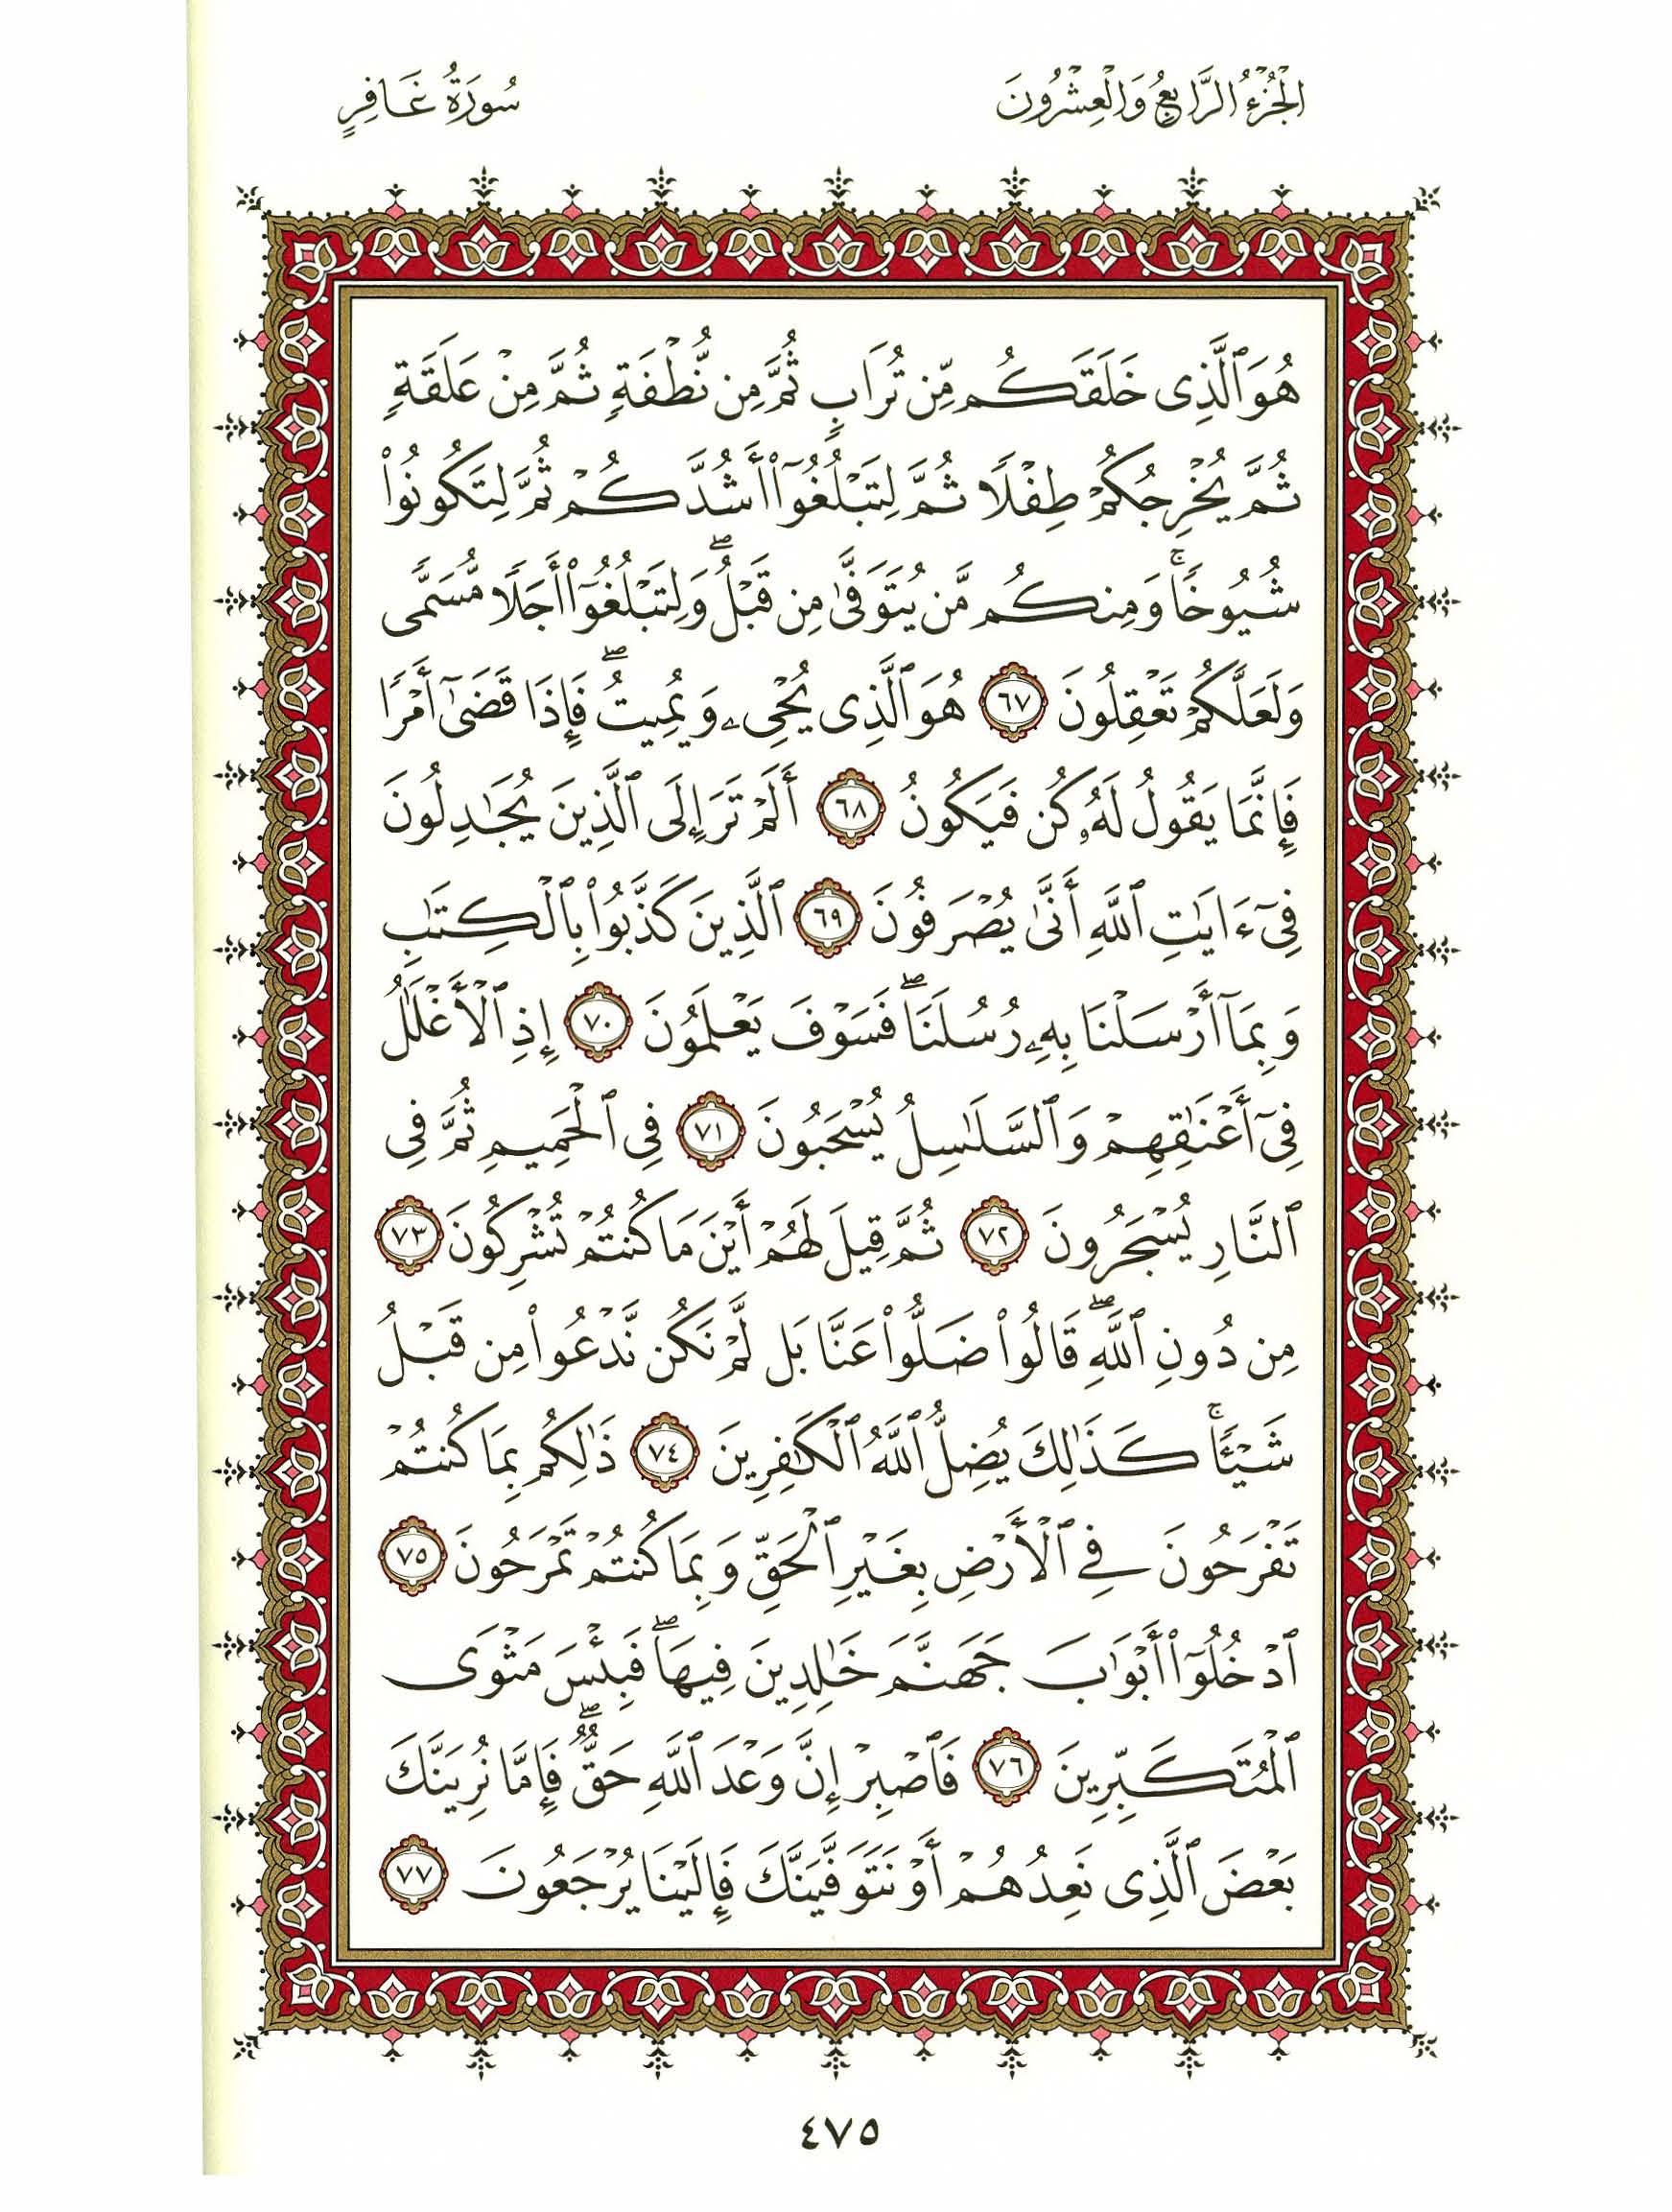 الجُزْءُ الرَّابِعُ وَالْعِشْرُونَ
سُورَةُ غَافِرٍ
هُوَ ٱلَّذِى خَلَقَكُم مِّن تُرَابٍ ثُمَّ مِن نُّطْفَةٍ ثُمَّ مِنْ عَلَقَةٍ
ثُمَّ يُخْرِجُكُمْ طِفْلًا ثُمَّ لِتَبْلُغُوٓا۟ أَشُدَّكُمْ ثُمَّ لِتَكُونُوا۟
شُيُوخًاۚ وَمِنكُم مَّن يُتَوَفَّىٰ مِن قَبْلُۖ وَلِتَبْلُغُوٓا۟ أَجَلًا مُّسَمًّى
وَلَعَلَّكُمْ تَعْقِلُونَ ٦٧ هُوَ ٱلَّذِى يُحْىِۦ وَيُمِيتُۖ فَإِذَا قَضَىٰٓ أَمْرًا
فَإِنَّمَا يَقُولُ لَهُۥ كُن فَيَكُونُ ٦٨ أَلَمْ تَرَ إِلَى ٱلَّذِينَ يُجَٰدِلُونَ
فِىٓ ءَايَٰتِ ٱللَّهِ أَنَّىٰ يُصْرَفُونَ ٦٩ ٱلَّذِينَ كَذَّبُوا۟ بِٱلْكِتَٰبِ
وَبِمَآ أَرْسَلْنَا بِهِۦ رُسُلَنَاۖ فَسَوْفَ يَعْلَمُونَ ٧٠ إِذِ ٱلْأَغْلَٰلُ
فِىٓ أَعْنَٰقِهِمْ وَٱلسَّلَٰسِلُ يُسْحَبُونَ ٧١ فِى ٱلْحَمِيمِ ثُمَّ فِى
ٱلنَّارِ يُسْجَرُونَ ٧٢ ثُمَّ قِيلَ لَهُمْ أَيْنَ مَا كُنتُمْ تُشْرِكُونَ ٧٣
مِن دُونِ ٱللَّهِۖ قَالُوا۟ ضَلُّوا۟ عَنَّا بَل لَّمْ نَكُن نَّدْعُوا۟ مِن قَبْلُ
شَيْـًٔاۚ كَذَٰلِكَ يُضِلُّ ٱللَّهُ ٱلْكَٰفِرِينَ ٧٤ ذَٰلِكُم بِمَا كُنتُمْ
تَفْرَحُونَ فِى ٱلْأَرْضِ بِغَيْرِ ٱلْحَقِّ وَبِمَا كُنتُمْ تَمْرَحُونَ ٧٥
ٱدْخُلُوٓا۟ أَبْوَٰبَ جَهَنَّمَ خَٰلِدِينَ فِيهَاۖ فَبِئْسَ مَثْوَى
ٱلْمُتَكَبِّرِينَ ٧٦ فَٱصْبِرْ إِنَّ وَعْدَ ٱللَّهِ حَقٌّۖ فَإِمَّا نُرِيَنَّكَ
بَعْضَ ٱلَّذِى نَعِدُهُمْ أَوْ نَتَوَفَّيَنَّكَ فَإِلَيْنَا يُرْجَعُونَ ٧٧
٤٧٥